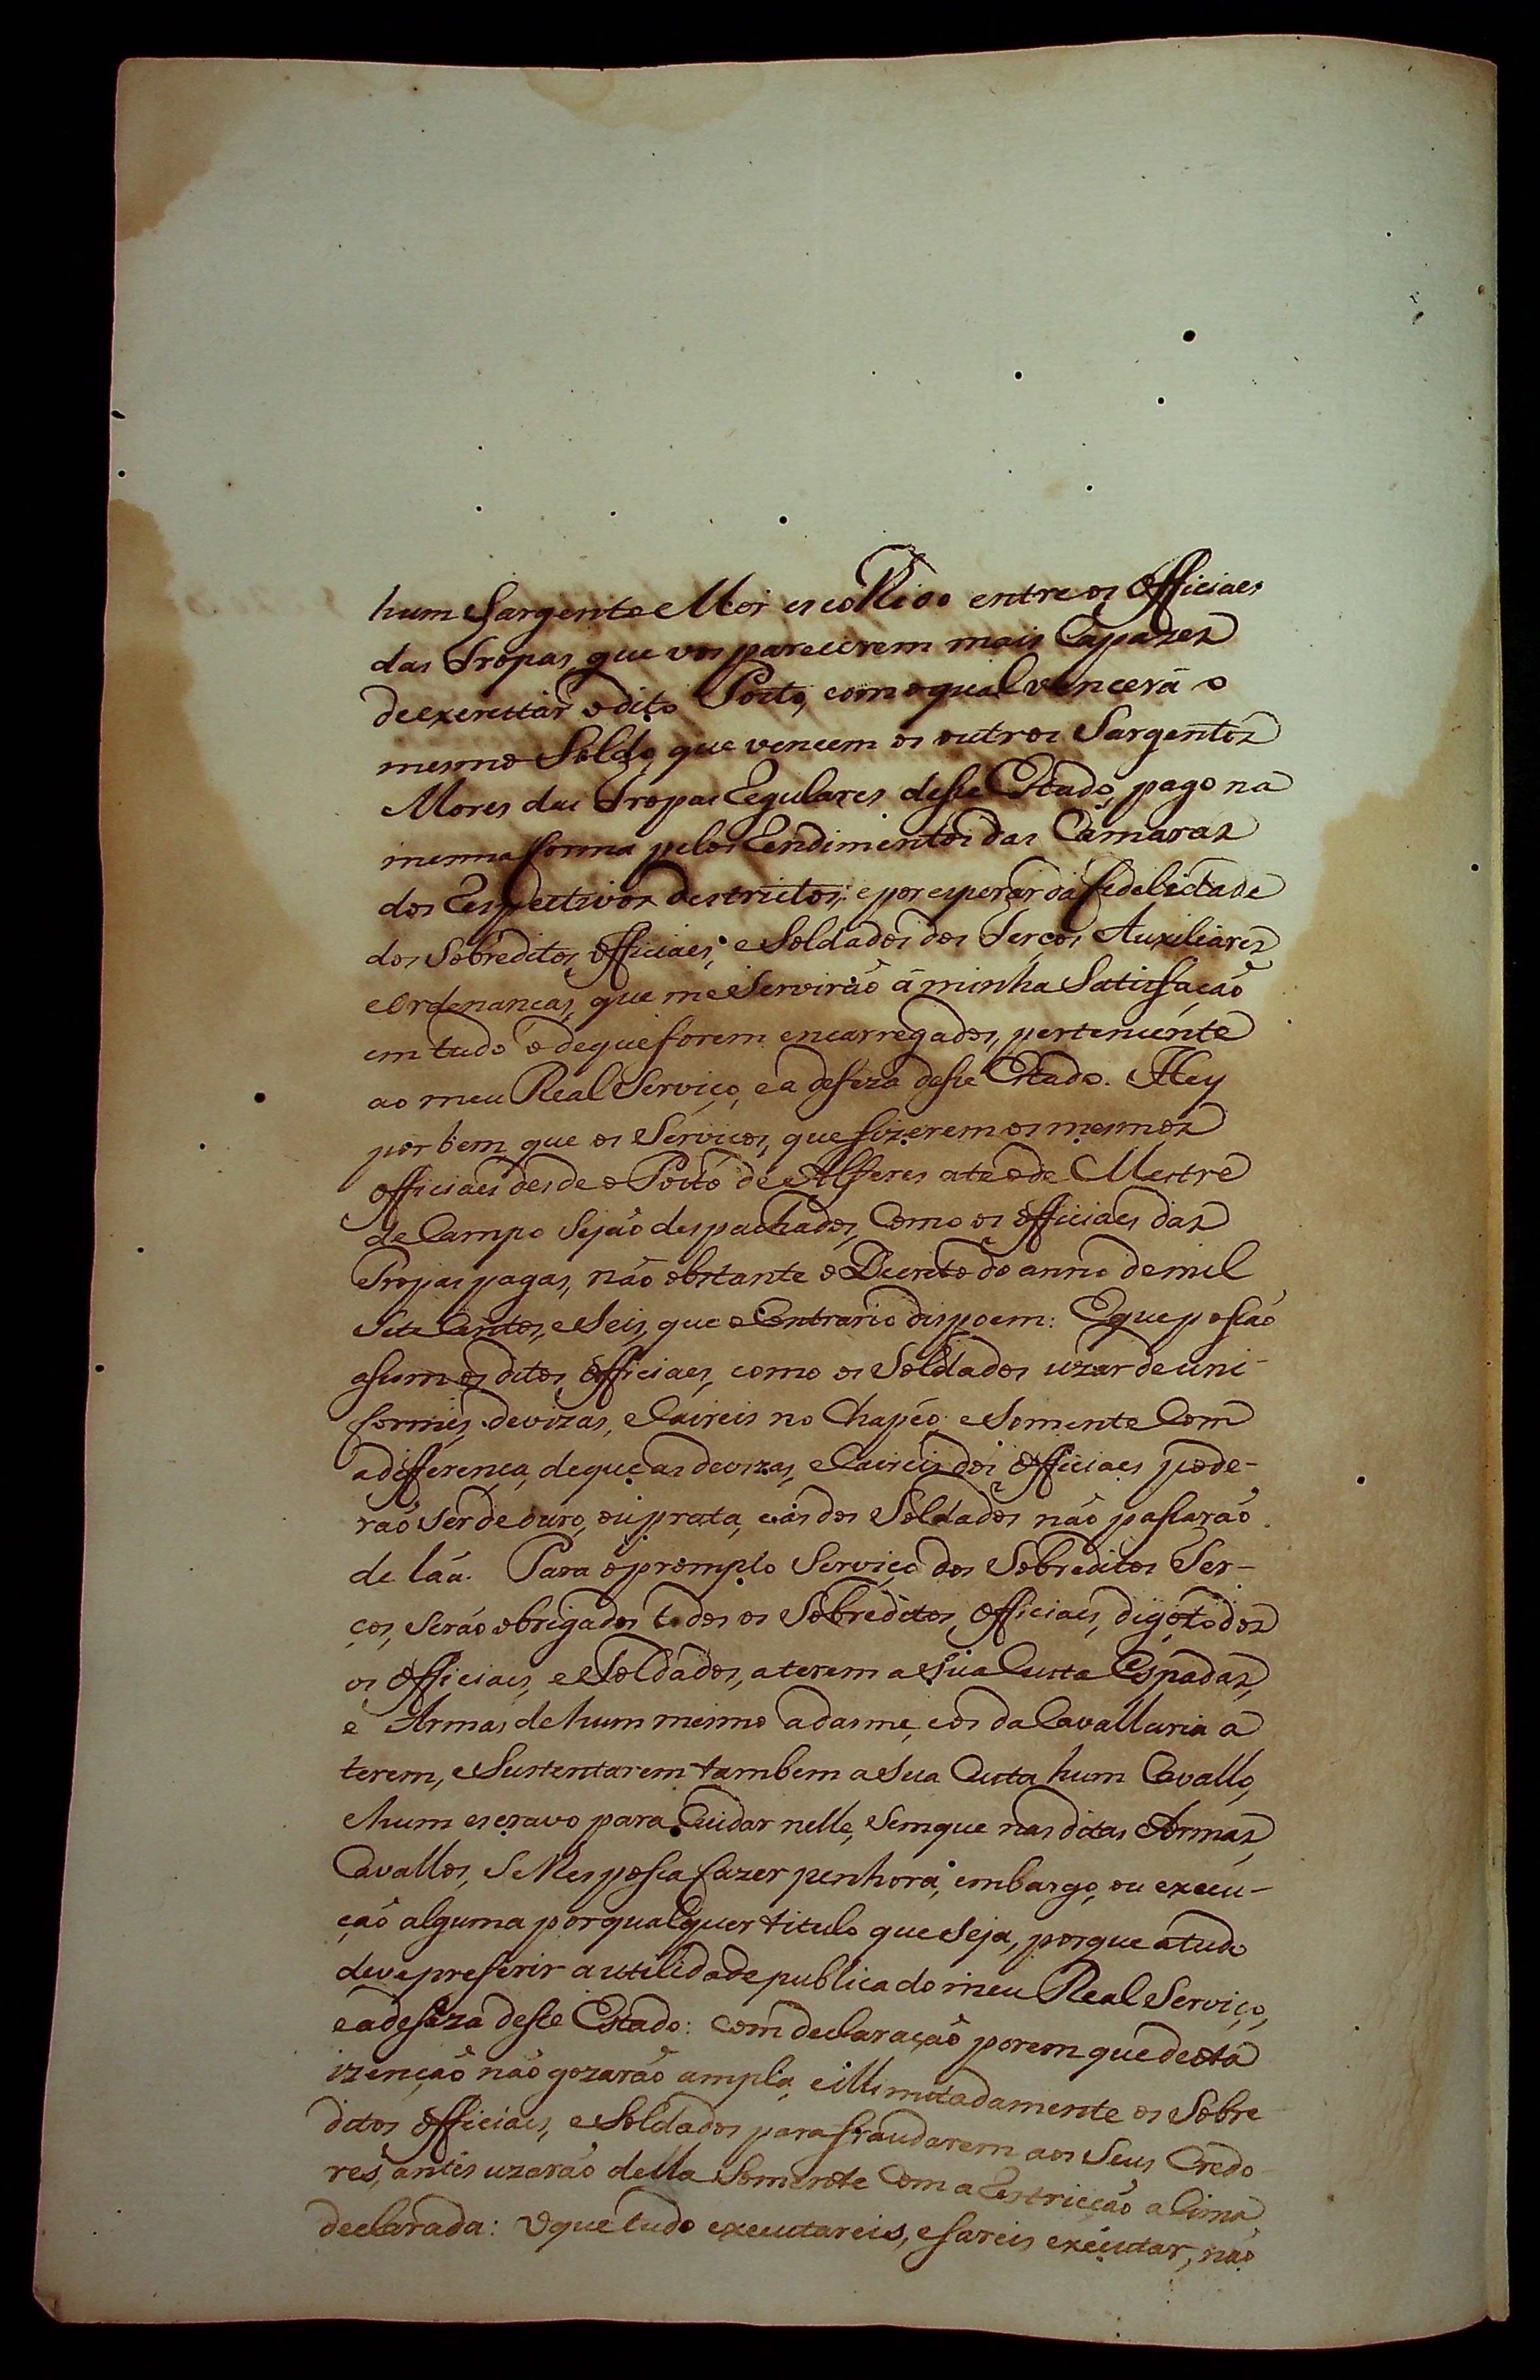 hum Sargento Mor escolhido entre os Officiaes
das Tropas, que vos parecerem mais Capazes
de exercitar o dito Posto, com o qual vencerá o
mesmo Soldo, que vencem os outros Sargentos
Mores das Tropas Regulares desse Estado, pago na
mesma forma pelos Rendimentos das Camaras
dos Respectivos destrictos; e por esperar da fidelidade
dos Sobreditos Officiaes, e Soldados dos Terços Auxiliares
e Ordenanças, que me Servirão á minha Satisfação
em tudo o de que forem encarregados, pertencente
ao meu Real Serviço, e a defeza desse Estado. Hey
por bem que os Serviços, que fizerem os mesmos
Officiaes desde o Posto de Alferes ate o de Mestre
de Campo Sejão despachados, Como os Officiaes das
Tropas pagas, não obstante o Decreto do anno de mil
Sete Centos, e Seis, que o Contrario dispoem: E que possão
assim os ditos Officiaes, como os Soldados uzar de uni-
formes, devizas, e Caireis no Chapéo; e Somente Com
a differença, de que as devizas, e Caireis dos Officiaes pode-
rão Ser de ouro, ou prata, e as dos Soldados não passarão
de lãa. Para o prompto Serviço dos Sobreditos Ter-
ços, Serão obrigados todos os Sobreditos Officiaes, digo, todos
os Officiaes, e Soldados, a terem a sua Custa Espadas,
e Armas de hum mesmo adarme, e os da Cavallaria a
terem, e Sustentarem tambem a Sua Custa hum Cavallo,
e hum escravo para Cuidar nelle, Sem que nas ditas Armas,
Cavallos, Se lhes possa fazer penhora, embargo, ou execu-
ção alguma por qualquer titulo que Seja, porque a tudo
deve preferir a utilidade publica do meu Real Serviço,
e a defeza desse Estado: Com declaração porem que desta
izenção não gozarão ampla, e illimitadamente os Sobre
ditos Officiaes, e Soldados para fraudarem aos Seus Credo-
res, antes uzarão della Somente Com a Restricção a Cima
declarada: O que tudo executareis, e fareis executar, não